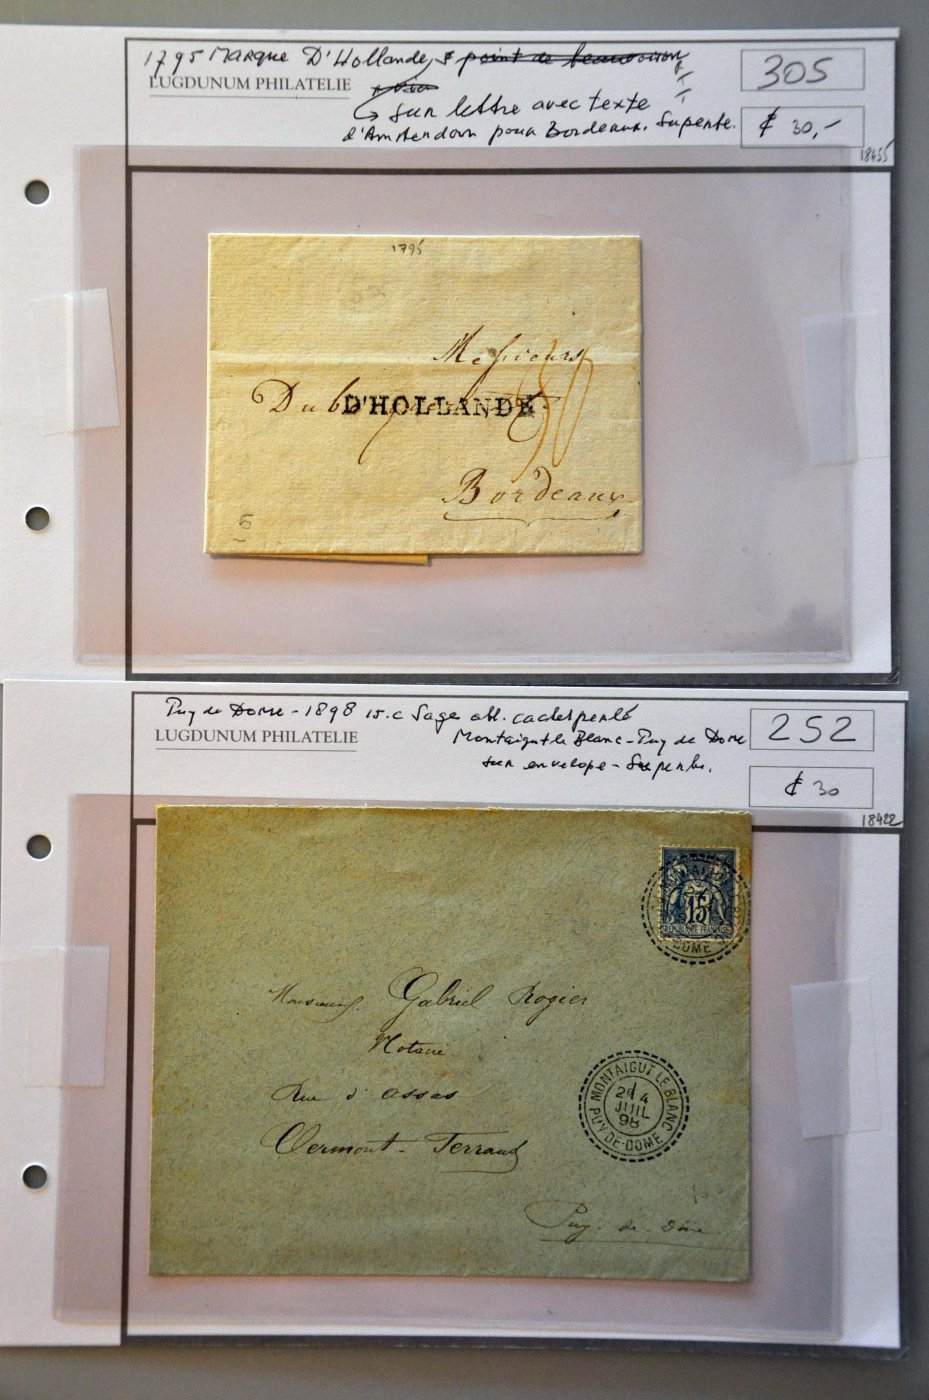 1795 Marque D'Hollande, + point de beauvoison
LUGDUNUM PHILATELIE
→ sur lettre avec texte
d'Amsterdam pour Bordeaux. Superbe.
305
€ 30,-
18455
1795
Messieurs
Dub
D'HOLLANDE
Bordeaux
6
Puy de Dome - 1898 15.c Sage obl. cachet perlé
LUGDUNUM PHILATELIE
Montaigut le Blanc - Puy de Dome
sur envelope - Superbe.
252
€ 30
18422
MONTAIGUT
15
DOME
Monsieur Gabriel Rogier
Notaire
Rue d'Assas
Clermont-Ferrand
MONTAIGUT LE BLANC
2E / 4
JUIL
98
PUY-DE-DOME
Puy-de-Dôme